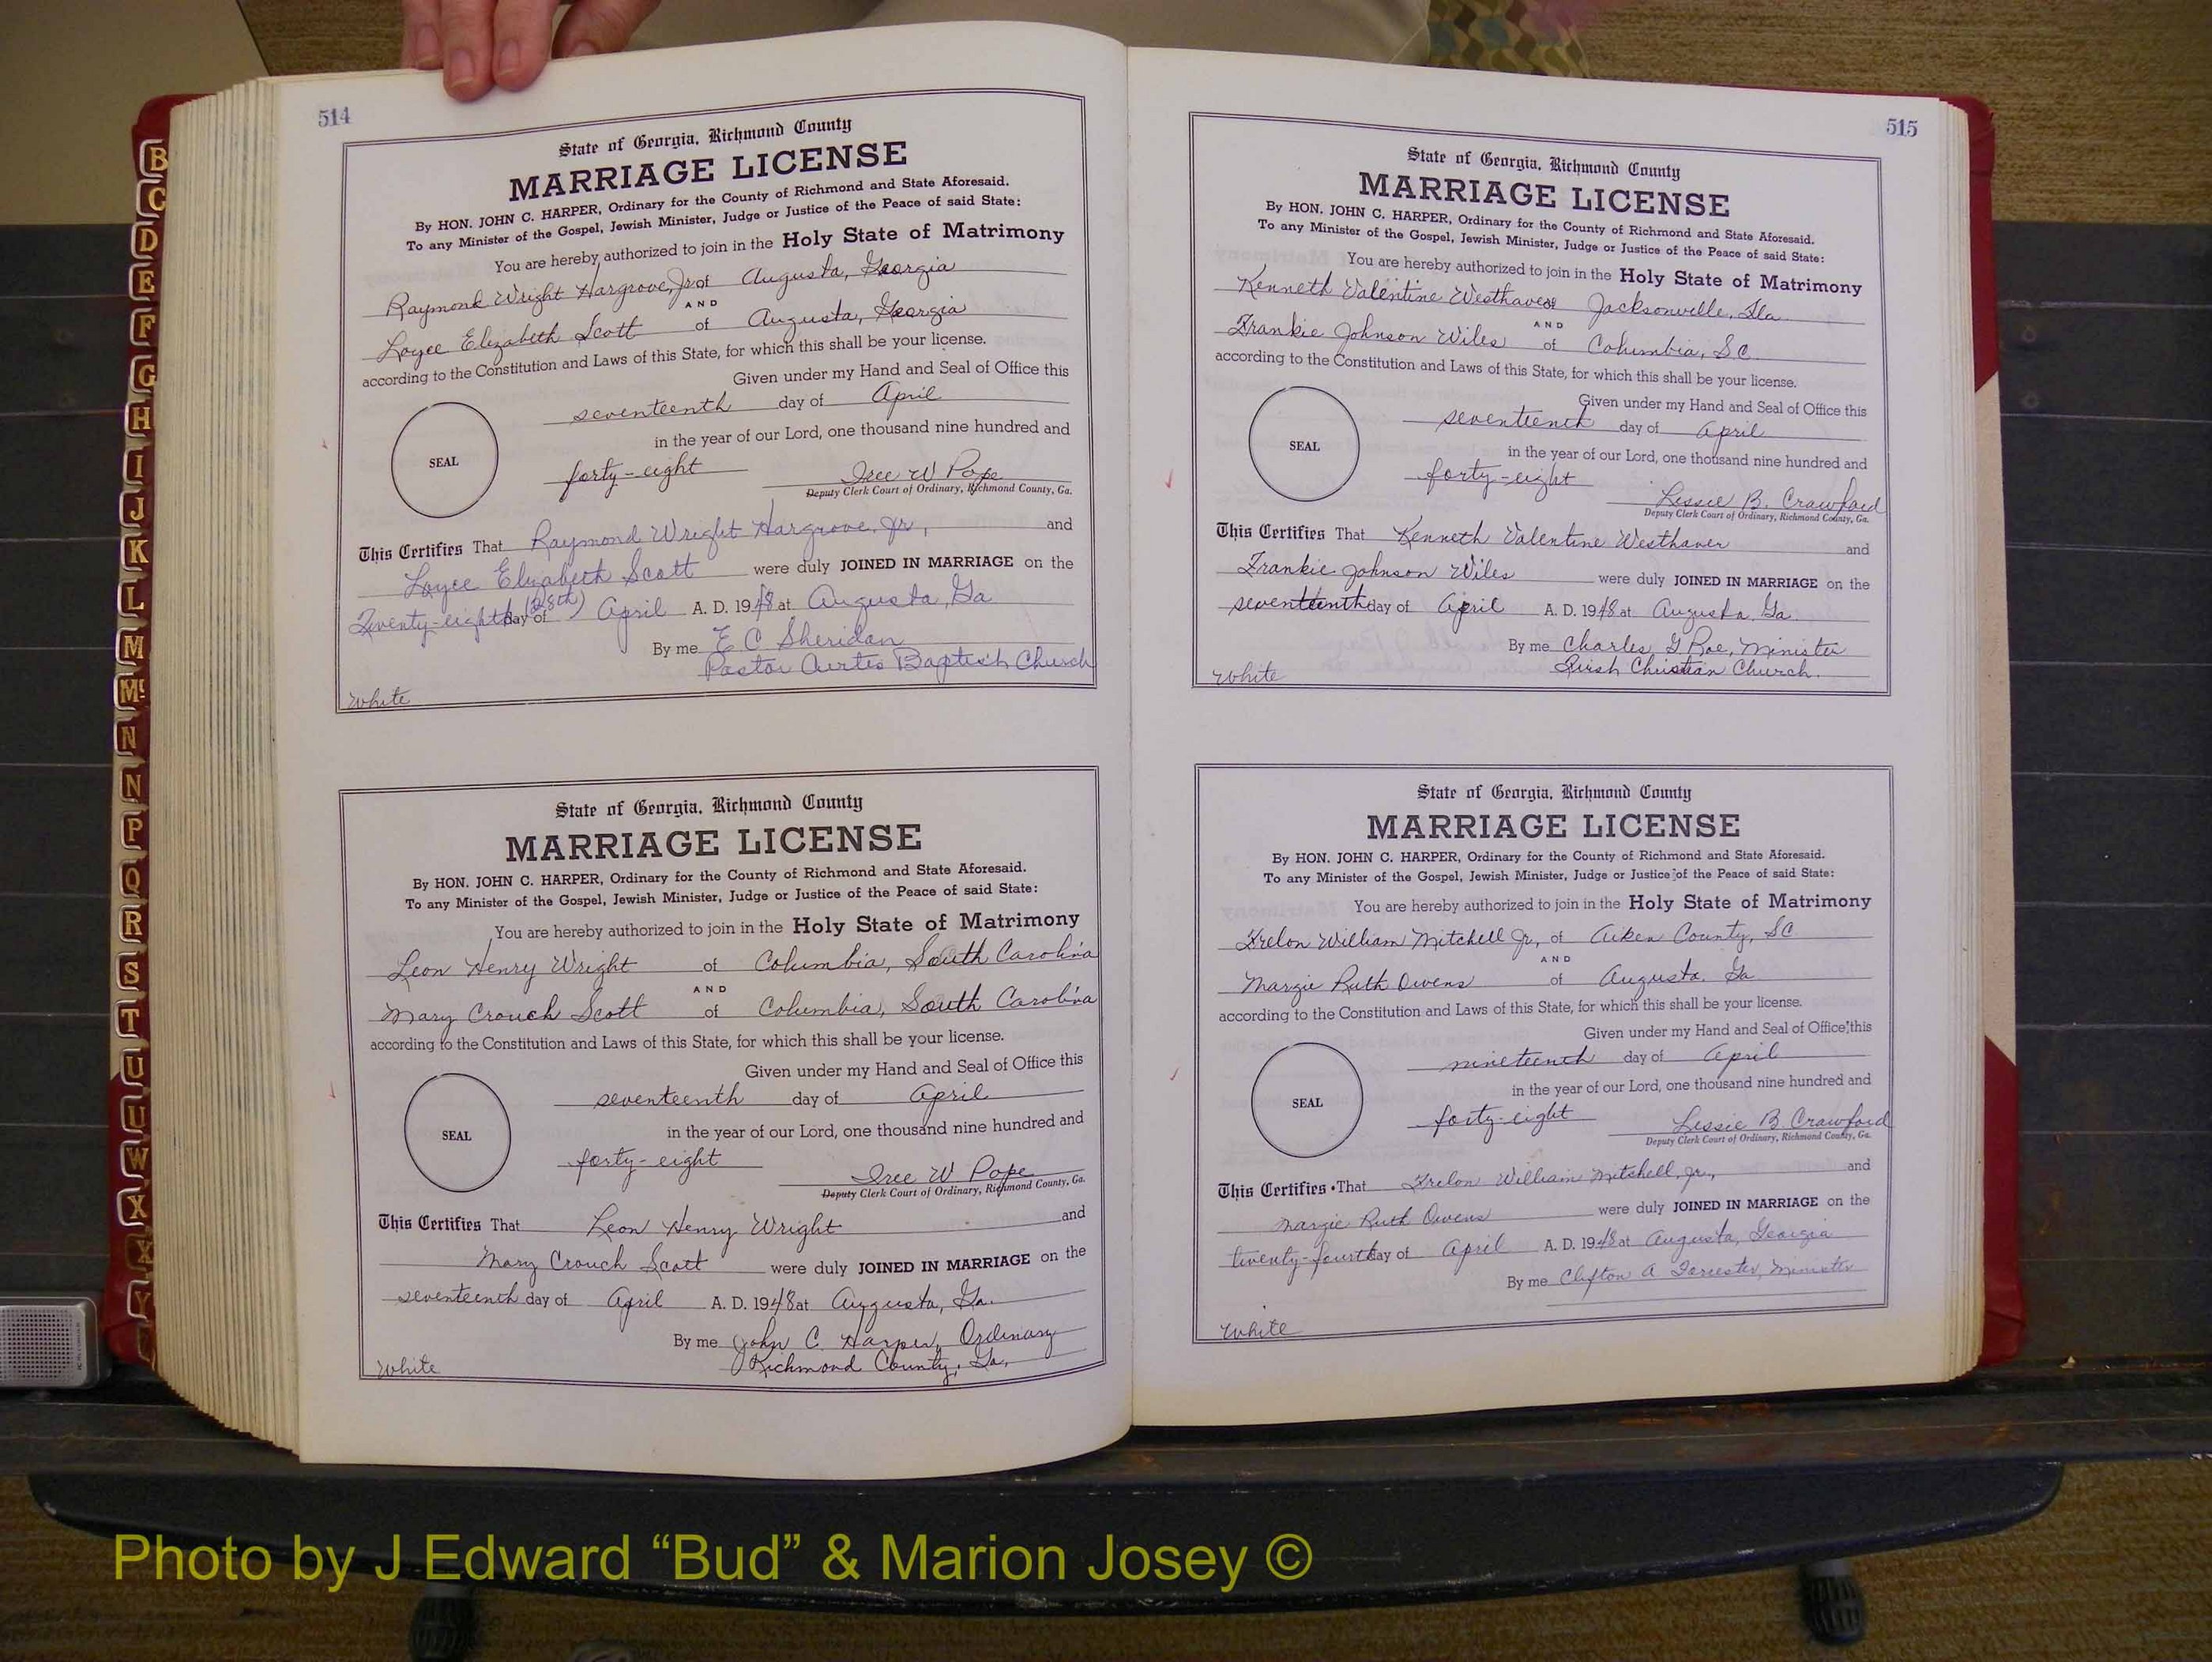 514
State of Georgia, Richmond County
MARRIAGE LICENSE
By HON. JOHN C. HARPER, Ordinary for the County of Richmond and State Aforesaid.
To any Minister of the Gospel, Jewish Minister, Judge or Justice of the Peace of said State:
You are hereby authorized to join in the Holy State of Matrimony
Raymond Wright Hargrove, Jr of Augusta, Georgia
AND
Loyce Elizabeth Scott of Augusta, Georgia
according to the Constitution and Laws of this State, for which this shall be your license.
Given under my Hand and Seal of Office this
seventeenth day of April
in the year of our Lord, one thousand nine hundred and
SEAL
forty-eight Iree W Pope
Deputy Clerk Court of Ordinary, Richmond County, Ga.
This Certifies That Raymond Wright Hargrove, Jr, and
Loyce Elizabeth Scott were duly JOINED IN MARRIAGE on the
Twenty-eighth (28th) day of April A. D. 1948 at Augusta, Ga
By me E C Sheridan
Pastor Curtis Baptist Church
White
State of Georgia, Richmond County
MARRIAGE LICENSE
By HON. JOHN C. HARPER, Ordinary for the County of Richmond and State Aforesaid.
To any Minister of the Gospel, Jewish Minister, Judge or Justice of the Peace of said State:
You are hereby authorized to join in the Holy State of Matrimony
Leon Henry Wright of Columbia, South Carolina
AND
Mary Crouch Scott of Columbia, South Carolina
according to the Constitution and Laws of this State, for which this shall be your license.
Given under my Hand and Seal of Office this
seventeenth day of April
in the year of our Lord, one thousand nine hundred and
SEAL
forty-eight Iree W Pope
Deputy Clerk Court of Ordinary, Richmond County, Ga.
This Certifies That Leon Henry Wright and
Mary Crouch Scott were duly JOINED IN MARRIAGE on the
seventeenth day of April A. D. 1948 at Augusta, Ga.
By me John C. Harper, Ordinary
Richmond County, Ga,
White
515
State of Georgia, Richmond County
MARRIAGE LICENSE
By HON. JOHN C. HARPER, Ordinary for the County of Richmond and State Aforesaid.
To any Minister of the Gospel, Jewish Minister, Judge or Justice of the Peace of said State:
You are hereby authorized to join in the Holy State of Matrimony
Kenneth Valentine Westhaver of Jacksonville, Fla
AND
Frankie Johnson Wiles of Columbia, S.C.
according to the Constitution and Laws of this State, for which this shall be your license.
Given under my Hand and Seal of Office this
seventeenth day of April
in the year of our Lord, one thousand nine hundred and
SEAL
forty-eight Lessie B. Crawford
Deputy Clerk Court of Ordinary, Richmond County, Ga.
This Certifies That Kenneth Valentine Westhaver and
Frankie Johnson Wiles were duly JOINED IN MARRIAGE on the
seventeenth day of April A. D. 1948 at Augusta, Ga.
By me Charles G Roe, Minister
Christian Church.
White
State of Georgia, Richmond County
MARRIAGE LICENSE
By HON. JOHN C. HARPER, Ordinary for the County of Richmond and State Aforesaid.
To any Minister of the Gospel, Jewish Minister, Judge or Justice of the Peace of said State:
You are hereby authorized to join in the Holy State of Matrimony
Trelon William Mitchell Jr, of Aiken County, SC
AND
Margie Ruth Owens of Augusta, Ga
according to the Constitution and Laws of this State, for which this shall be your license.
Given under my Hand and Seal of Office this
nineteenth day of April
in the year of our Lord, one thousand nine hundred and
SEAL
forty-eight Lessie B Crawford
Deputy Clerk Court of Ordinary, Richmond County, Ga.
This Certifies That Trelon William Mitchell, Jr., and
Margie Ruth Owens were duly JOINED IN MARRIAGE on the
twenty-fourth day of April A. D. 1948 at Augusta, Georgia
By me Clifton A. Forrester, Minister
White
B
C
D
E
F
G
H
I
J
K
L
M
Mc
N
N
P
Q
R
S
T
U
U
W
X
X
Y
Photo by J Edward “Bud” & Marion Josey ©